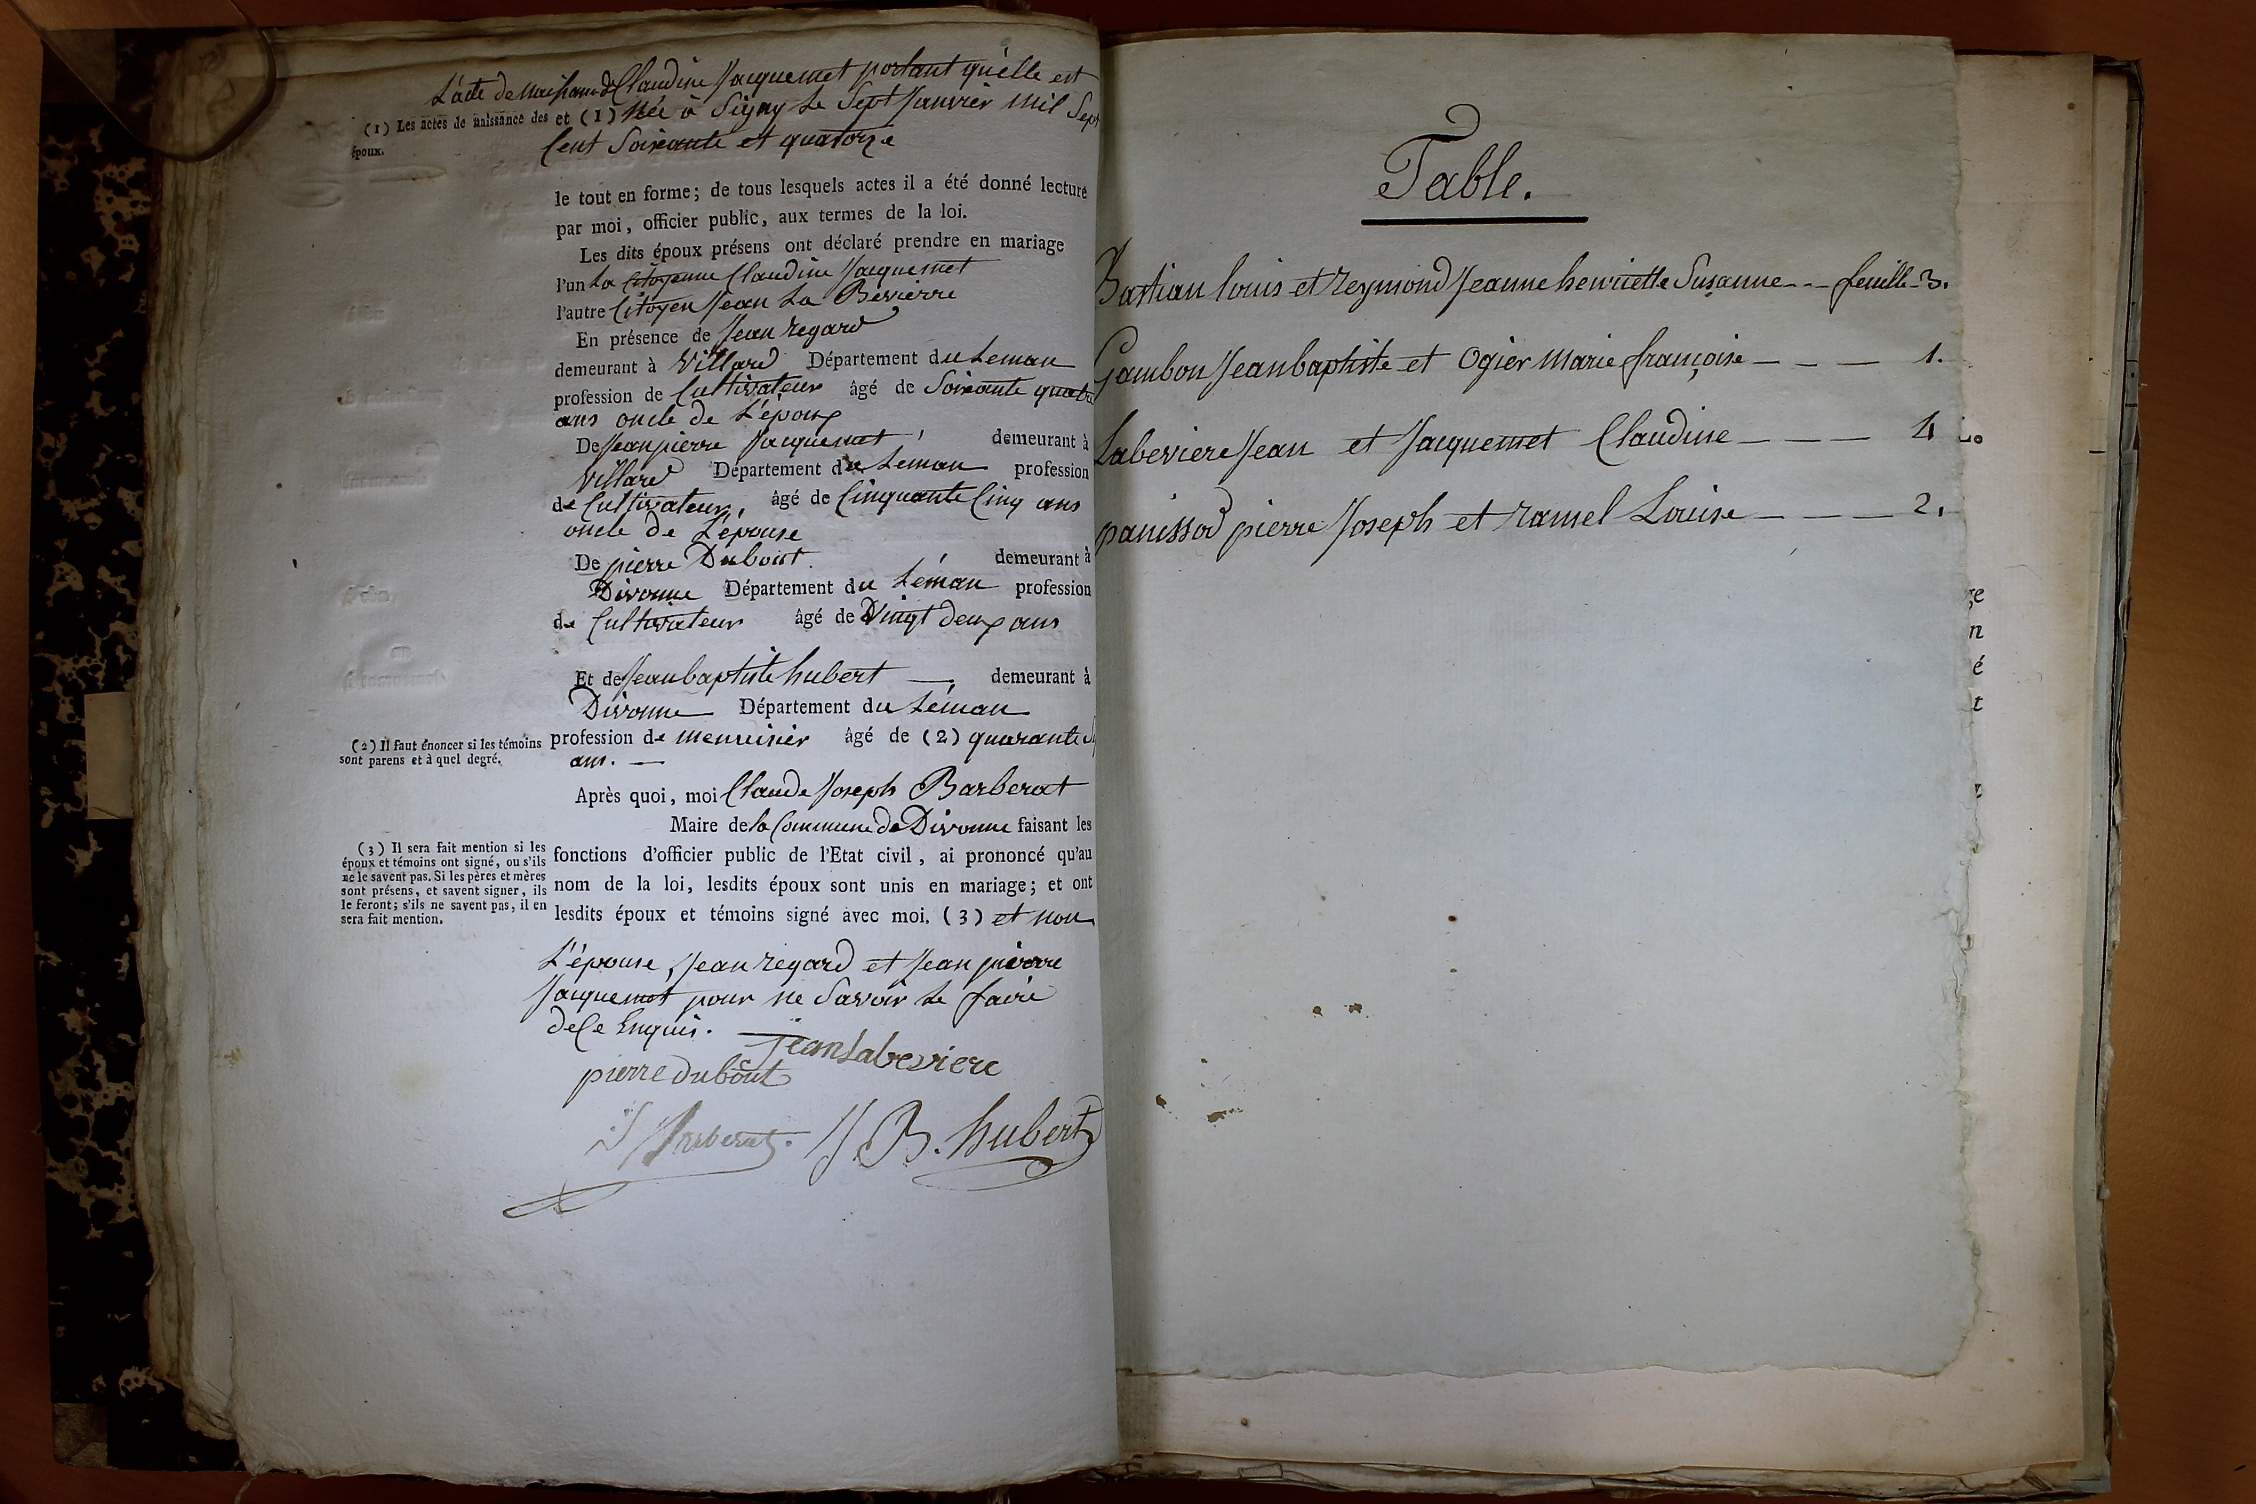 L'acte de Naissance de Claudine Jacquemet portant qu'elle est
(1) Les actes de naissance des époux.
et (1) Née à Signy le Sept Janvier mil Sept
Cent Soixante et quatorze
le tout en forme; de tous lesquels actes il a été donné lecture
par moi, officier public, aux termes de la loi.
Les dits époux présens ont déclaré prendre en mariage
l'un La Citoyenne Claudine Jacquemet
l'autre Citoyen Jean La Bevierre
En présence de Jean Regard
demeurant à Villard Département du Leman
profession de Cultivateur âgé de Soixante quatre
ans oncle de L'époux
De Jean pierre Jacquemet demeurant à
Villard Département du Leman profession
de Cultivateur, âgé de Cinquante Cinq ans
oncle de L'épouse
De pierre Dubout demeurant à
Divonne Département du Léman profession
de Cultivateur âgé de Vingt deux ans
Et de Jean baptiste hubert — demeurant à
Divonne Département du Léman
(2) Il faut énoncer si les témoins
sont parens et à quel degré.
profession de menuisier âgé de (2) quarante
ans. —
Après quoi, moi Claude Joseph Barberat
Maire de la Commune de Divonne faisant les
(3) Il sera fait mention si les
époux et témoins ont signé, ou s'ils
ne le savent pas. Si les pères et mères
sont présens, et savent signer, ils
le feront; s'ils ne savent pas, il en
sera fait mention.
fonctions d'officier public de l'Etat civil, ai prononcé qu'au
nom de la loi, lesdits époux sont unis en mariage; et ont
lesdits époux et témoins signé avec moi. (3) et non
L'épouse, Jean Regard et Jean pierre
Jacquemet pour ne Savoir le faire
de Ce Enquis. —
jean Labeviere
pierre dubout
Barberat. J B. hubert
Table.
Bastian louis et Reymond Jeanne henriette Susanne - - - feuille 3.
Gambon Jean baptiste et Ogier Marie françoise — — — 1.
Labeviere Jean et Jacquemet Claudine — — — 4
panissod pierre Joseph et Ramel Louise — — — 2.